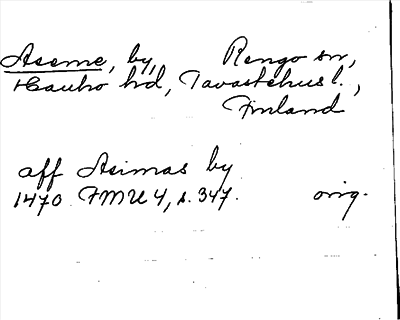 Aseme, by, Rengo sn,
Hauho hd, Tavastehus l.,
Finland
aff Asimas by
1470 FMU 4, s. 347. orig.